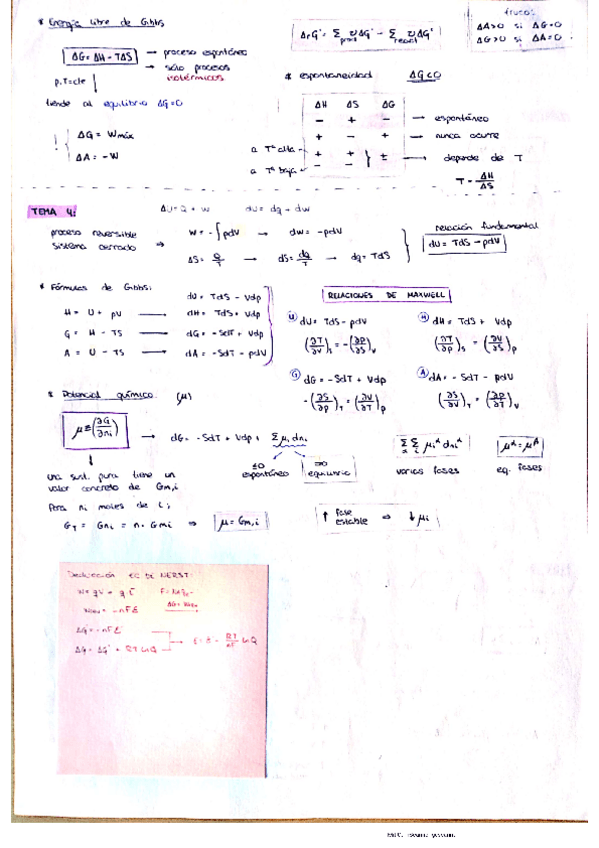 * Energía libre de Gibbs
ΔG = ΔH - TΔS → proceso espontáneo
→ sólo procesos isotérmicos
p,T=cte
tiende al equilibrio ΔG=0
! { ΔG = Wmáx
ΔA = -W
ΔrG° = Σ prod υΔG° - Σ react υΔG°
truco:
ΔA>0 si ΔG<0
ΔG>0 si ΔA=0
* espontaneidad ΔG<0
ΔH ΔS ΔG
- + - → espontáneo
+ - + → nunca ocurre
a Tª alta + + } ± → depende de T
a Tª baja - -
T = ΔH/ΔS
TEMA 4: ΔU = Q + W dU = dq + dW
proceso reversible
sistema cerrado ⇒ W = -∫pdV → dW = -pdV
ΔS = Q/T → dS = dq/T → dq = TdS
relación fundamental
dU = TdS - pdV
* Fórmulas de Gibbs:
dU = TdS - Vdp
H = U + pV → dH = TdS + Vdp
G = H - TS → dG = -SdT + Vdp
A = U - TS → dA = -SdT - pdV
RELACIONES DE MAXWELL
(U) dU = TdS - pdV
(∂T/∂V)S = -(∂p/∂S)V
(H) dH = TdS + Vdp
(∂T/∂p)S = (∂V/∂S)p
(G) dG = -SdT + Vdp
-(∂S/∂p)T = (∂V/∂T)p
(A) dA = -SdT - pdV
(∂S/∂V)T = (∂p/∂T)V
* Potencial químico (μ)
μ ≡ (∂G/∂ni) → dG = -SdT + Vdp + Σμi dni
≠0 espontáneo
=0 equilibrio
Σα Σi μiα dniα
varias fases
μα = μβ
eq. fases
una sust. pura tiene un
valor concreto de Gm,i
Para ni moles de i:
GT = Gni = n · Gmi ⇒ μ = Gm,i
↑ fase estable ⇒ ↓ μi
Deducción EC DE NERST:
ΔG° = -nFE°
ΔG = ΔG° + RT lnQ